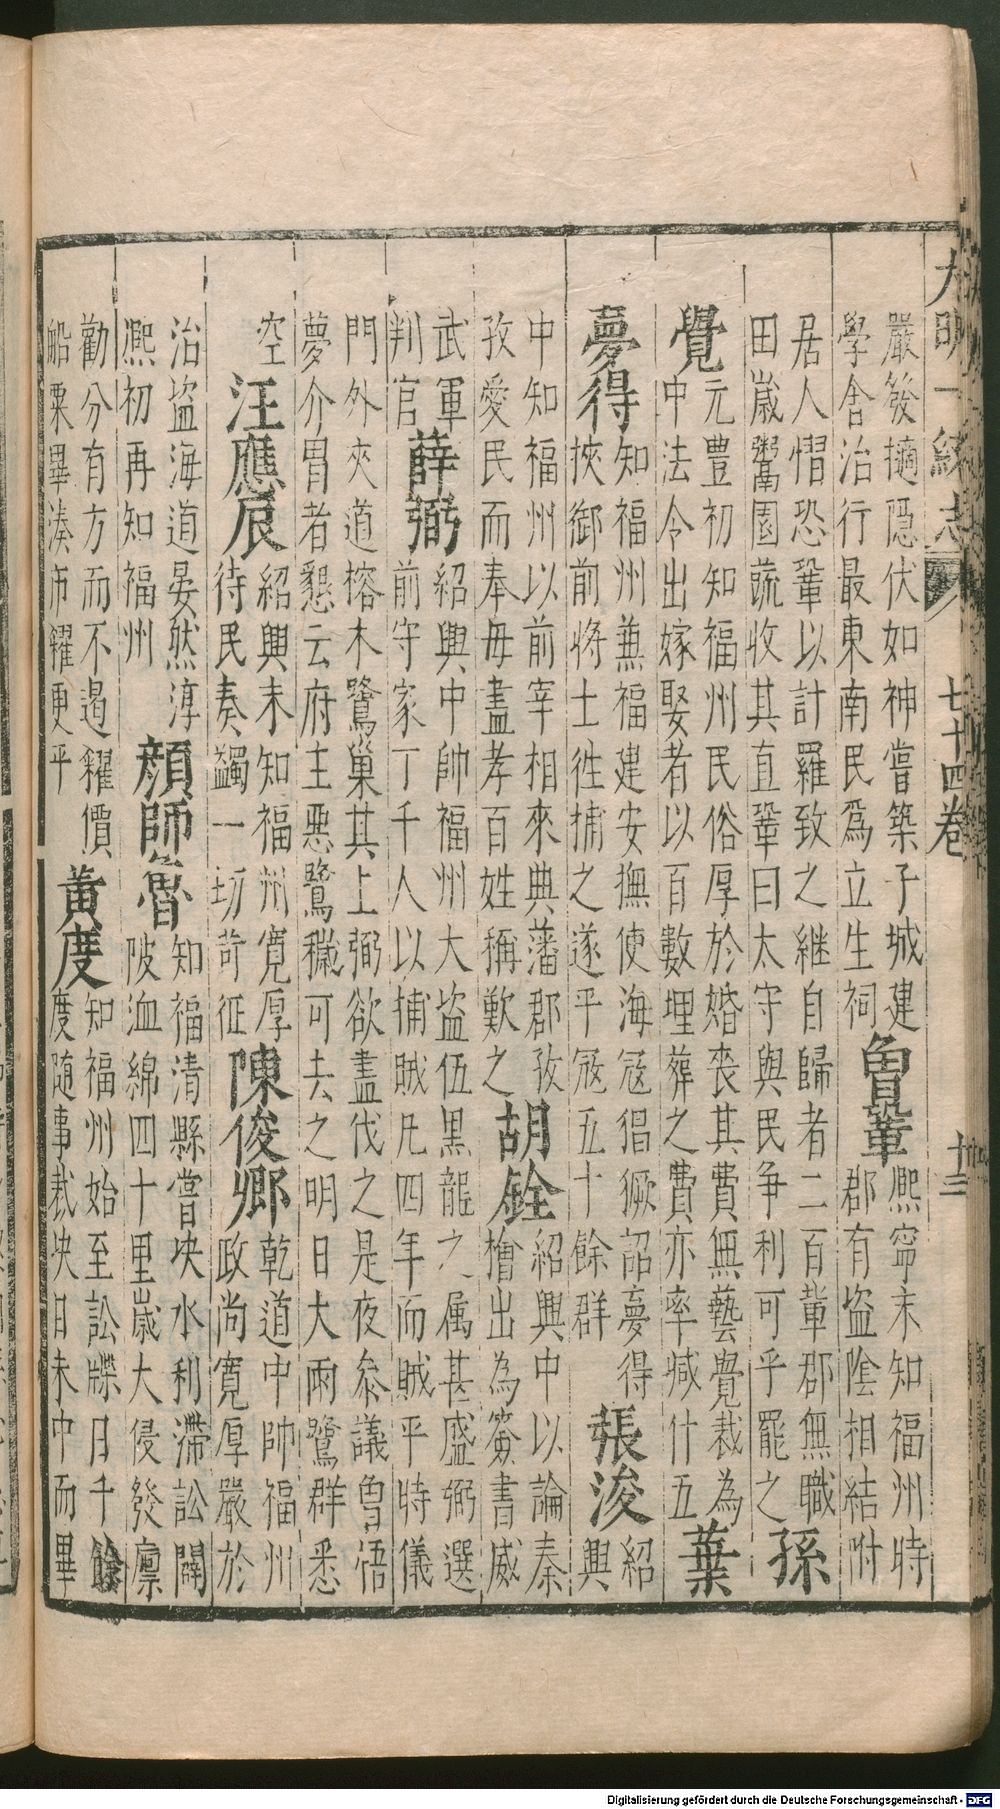 大明一統志 七十四卷 十三
嚴發擿隠伏如神嘗築子城建
學舍治行最東南民爲立生祠
曾鞏
熈寕末知福州時
郡有盜陰相結附
居人慴恐鞏以計羅致之継自歸者二百輩郡無職
田歲鬻園蔬收其直鞏曰太守與民爭利可乎罷之
孫
覺
元豊初知福州民俗厚於婚喪其費無藝覺裁為
中法令出嫁娶者以百數埋葬之費亦率减什五
葉
夢得
知福州兼福建安撫使海冦猖獗詔夢得
挾御前將士徃捕之遂平冦五十餘群
張浚
紹
興
中知福州以前宰相來典藩郡孜
孜愛民而奉毋盡孝百姓稱歎之
胡銓
紹興中以論秦
檜出為簽書威
武軍
判官
薛弼
紹興中帥福州大盜伍黑龍之属甚盛弼選
前守家丁千人以捕賊凡四年而賊平時儀
門外夾道榕木鷺巢其上弼欲盡伐之是夜叅議曾悟
夢介冑者懇云府主惡鷺穢可去之明日大雨鷺群悉
空
汪應辰
紹興末知福州寛厚
待民奏蠲一切苛征
陳俊卿
乾道中帥福州
政尚寛厚嚴於
治盜海道晏然淳
熈初再知福州
顔師魯
知福清縣嘗决水利滯訟闢
陂洫綿四十里歲大侵發廪
勸分有方而不遏糴價
船粟畢湊市糴更平
黃度
知福州始至訟牒日千餘
度随事裁决日未中而畢
Digitalisierung gefördert durch die Deutsche Forschungsgemeinschaft - DFG